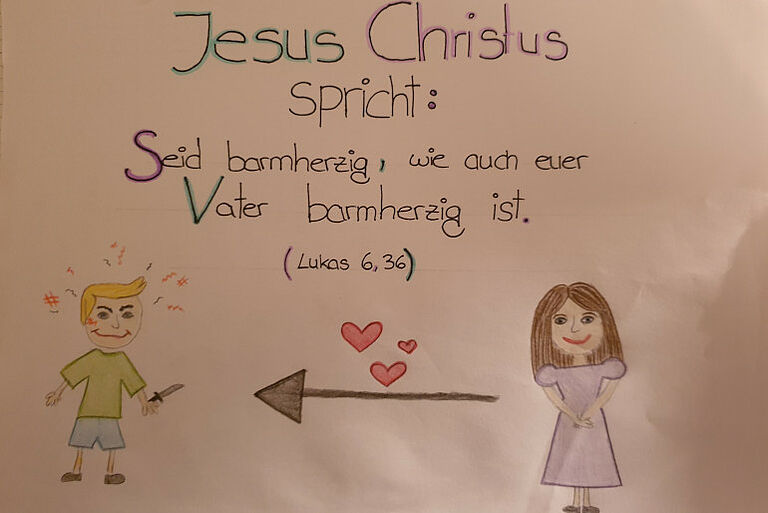 Jesus Christus
spricht:
Seid barmherzig, wie auch euer
Vater barmherzig ist.
(Lukas 6,36)